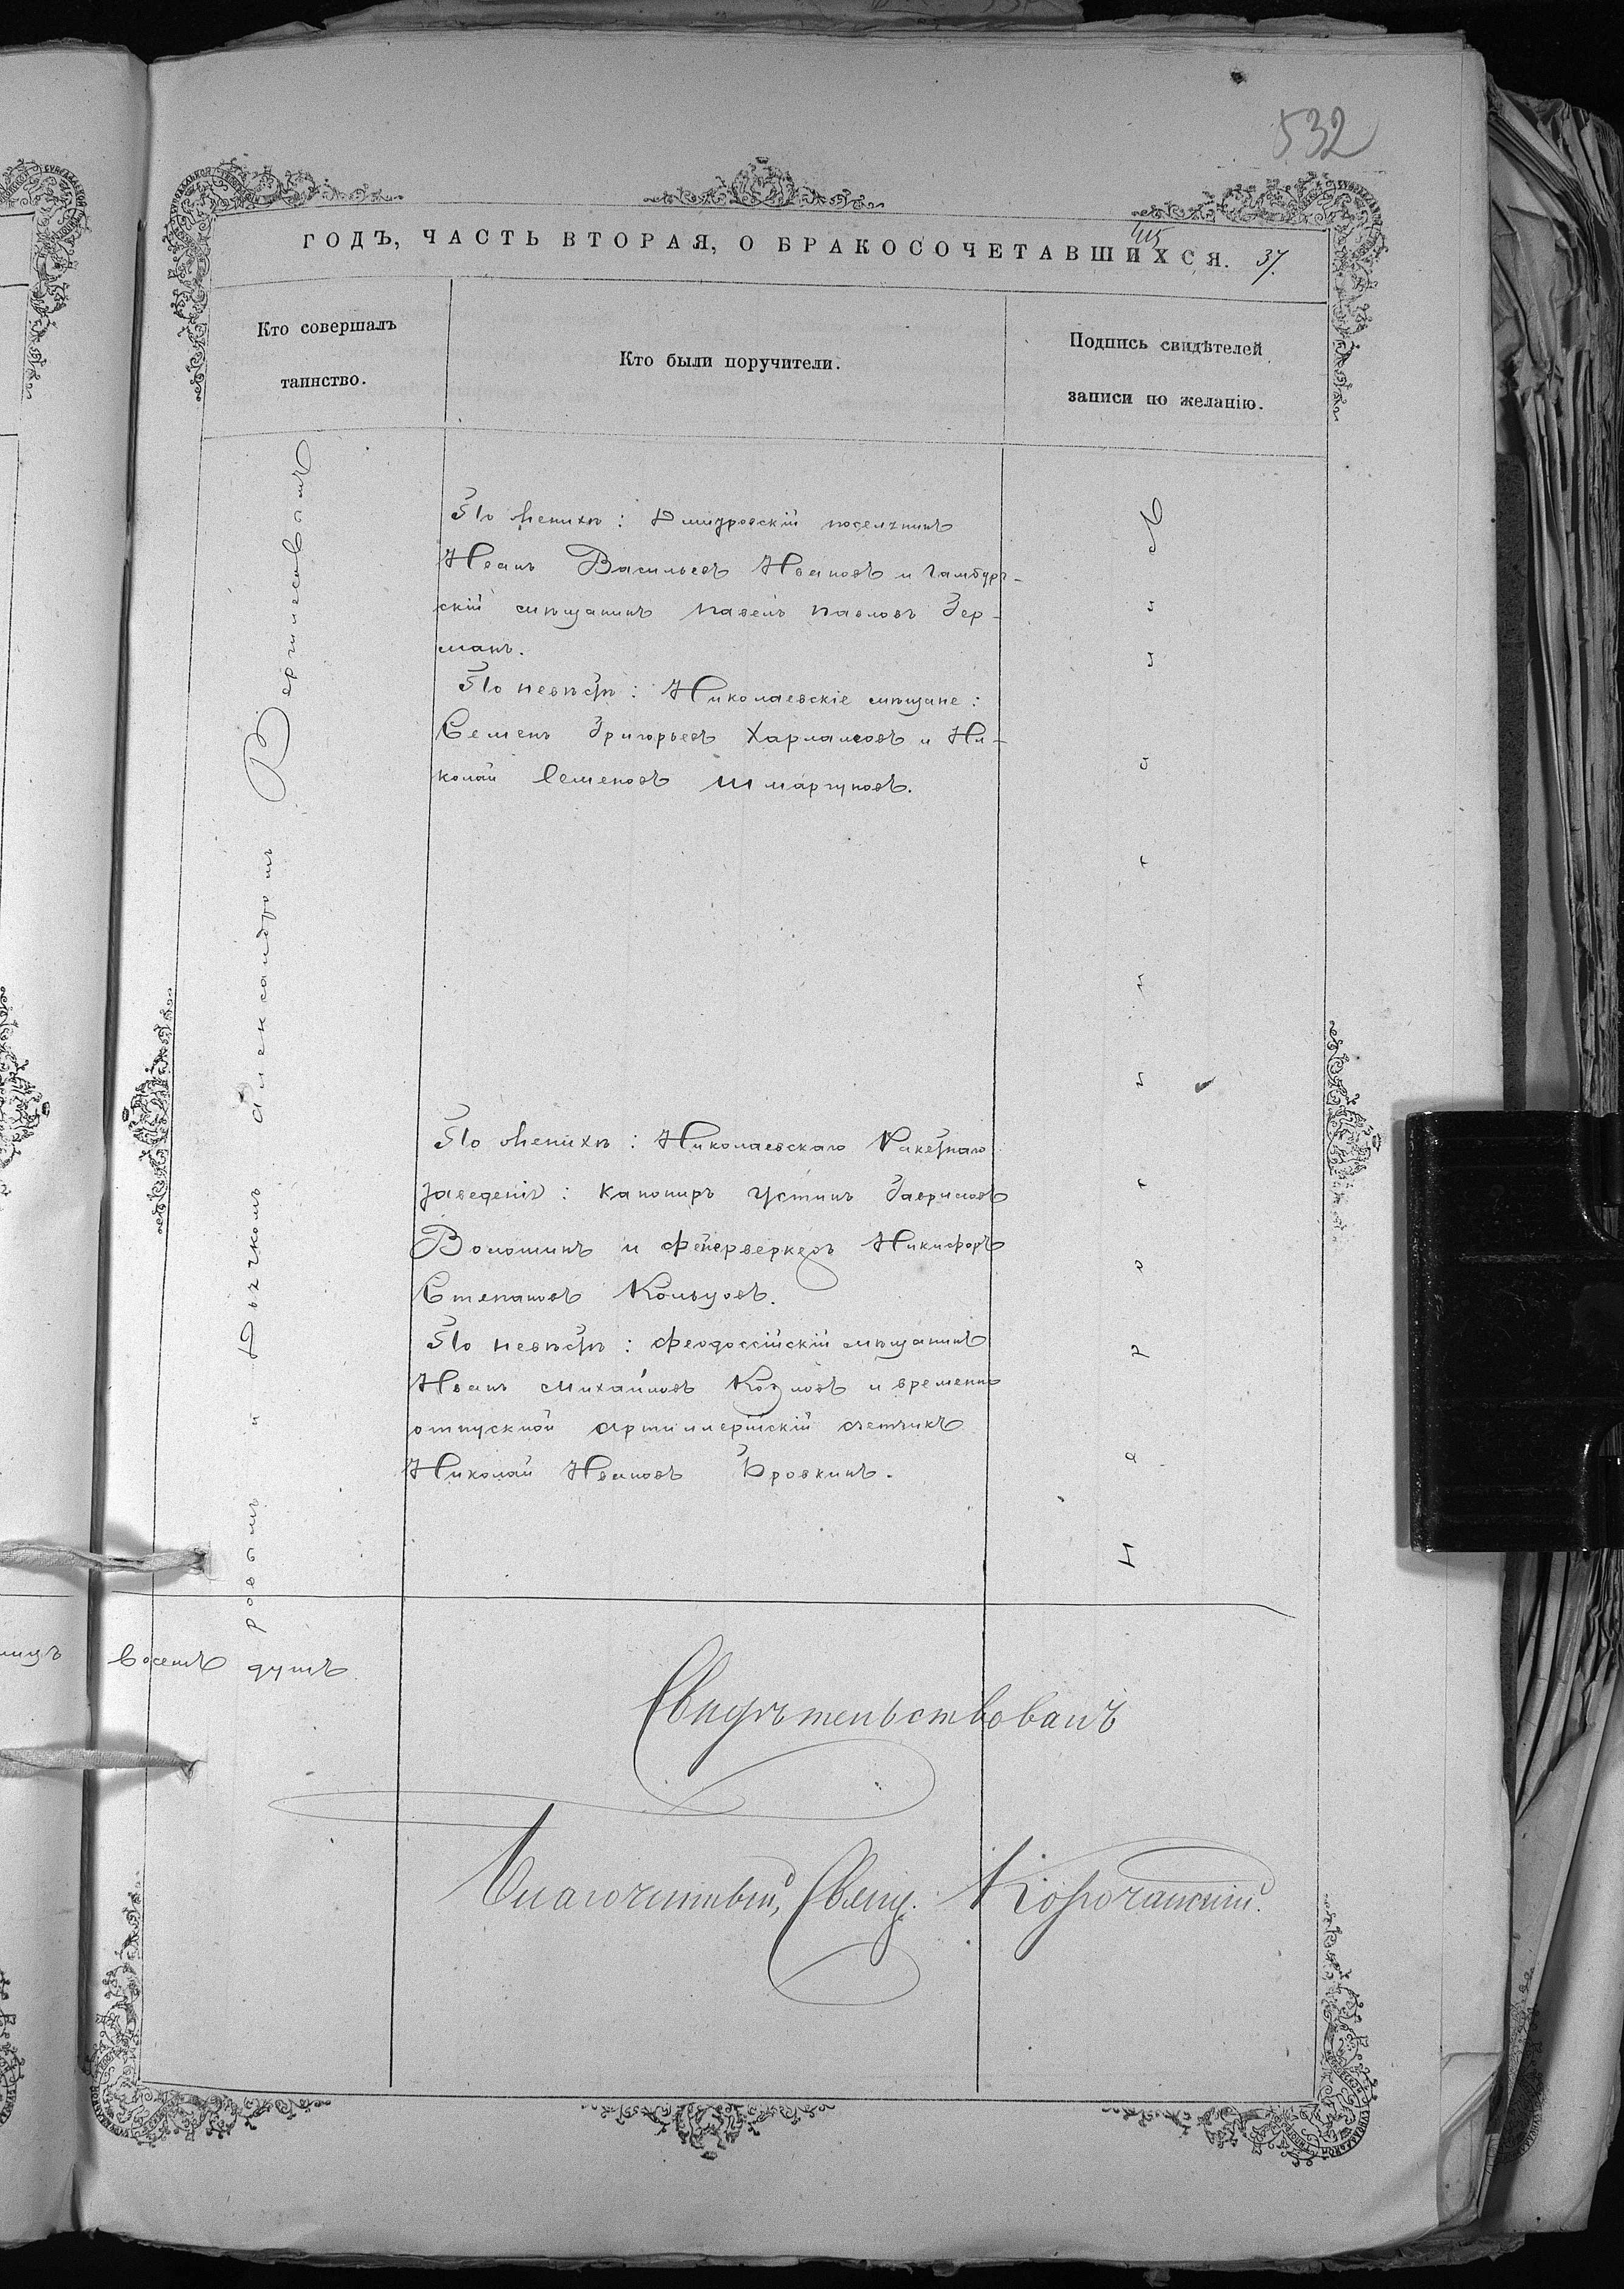 532
ГОДЪ, ЧАСТЬ ВТОРАЯ, О БРАКОСОЧЕТАВШИХСЯ. 37.
Кто совершалъ
таинство.
Кто были поручители.
Подпись свидѣтелей
записи по желанію.
ровымъ и Дьячкомъ Александромъ Вертинсовымъ
По женихѣ: Дмитровскій поселянинъ
Иванъ Васильевъ Ивановъ и Гамбург-
скій мѣщанинъ Павелъ Павловъ Гер-
манъ.
По невѣстѣ: Николаевскіе мѣщане:
Семенъ Григорьевъ Харламовъ и Ни-
колай Семеновъ Шмаргуновъ.
По женихѣ: Николаевскаго Ракетнаго
заведенія: канониръ Густинъ Гавриловъ
Волошинъ и фейерверкеръ Никифоръ
Степановъ Кольцовъ.
По невѣстѣ: Феодоссійскій мѣщанинъ
Иванъ Михайловъ Козловъ и временно
отпускной артиллерійскій счетчикъ
Николай Ивановъ Бровкинъ.
восемъ душъ
Свидѣтельствовалъ
Благочинный, Свящ. Корочанскій.